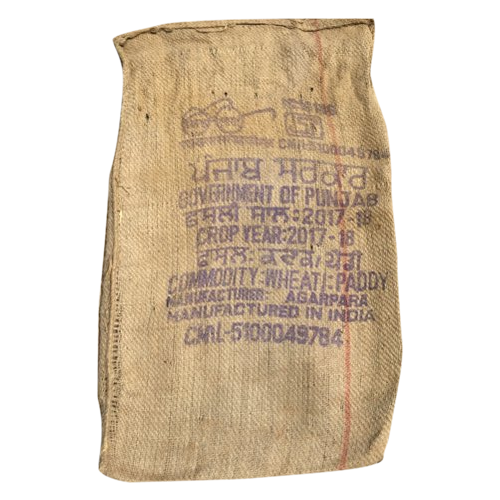 CM/L-5100049784
ਪੰਜਾਬ ਸਰਕਾਰ
GOVERNMENT OF PUNJAB
ਫਸਲੀ ਸਾਲ:2017-18
CROP YEAR:2017-18
ਫਸਲ: ਕਣਕ/ਪੈਡੀ
COMMODITY:WHEAT/PADDY
MANUFACTURER:- AGARPARA
MANUFACTURED IN INDIA
CM/L-5100049784